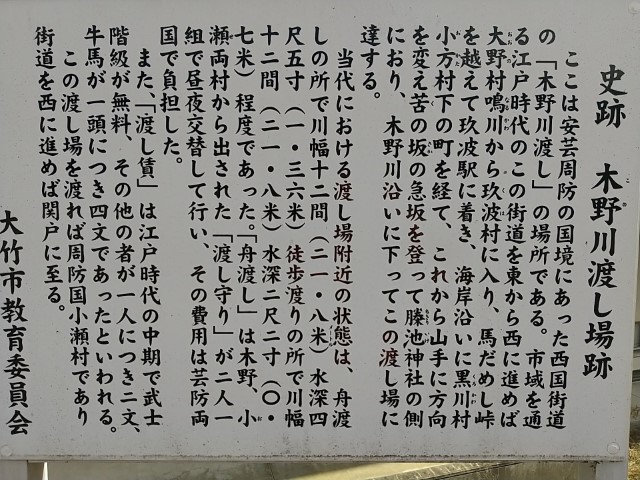 史跡　木野川渡し場跡
ここは安芸周防の国境にあった西国街道
の「木野川渡し」の場所である。市域を通
る江戸時代のこの街道を東から西に進めば
大野村鳴川から玖波村に入り、馬だめし峠
を越えて玖波駅に着き、海岸沿いに黒川村
小方村下の町を経て、これから山手に方向
を変え苦の坂の急坂を登って勝池神社の側
におり、木野川沿いに下ってこの渡し場に
達する。
当代における渡し場附近の状態は、舟渡
しの所で川幅十二間（二一・八米）水深四
尺五寸（一・三六米）徒歩渡りの所で川幅
十二間（二一・八米）水深二尺二寸（〇・
七米）程度であった。「舟渡し」は木野、小
瀬両村から出された「渡し守り」が二人一
組で昼夜交替して行い、その費用は芸防両
国で負担した。
また、「渡し賃」は江戸時代の中期で武士
階級が無料、その他の者が一人につき二文、
牛馬が一頭につき四文であったといわれる。
この渡し場を渡れば周防国小瀬村であり
街道を西に進めば関戸に至る。
大竹市教育委員会